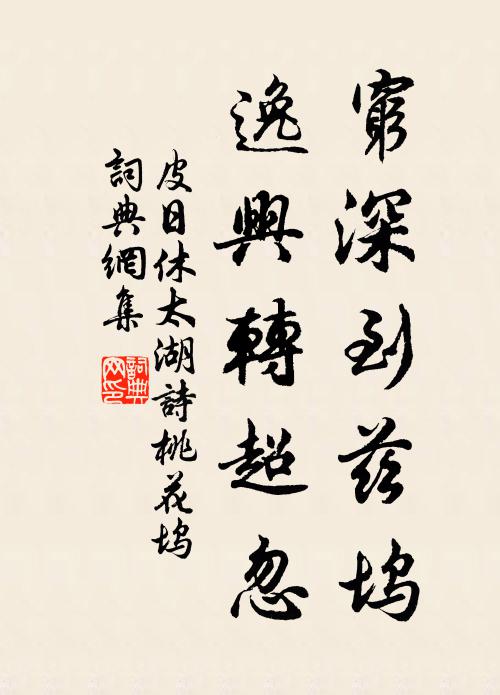 窮深到茲塢
逸興轉超忽
皮日休太湖詩桃花塢
詞典網集
詞典网印